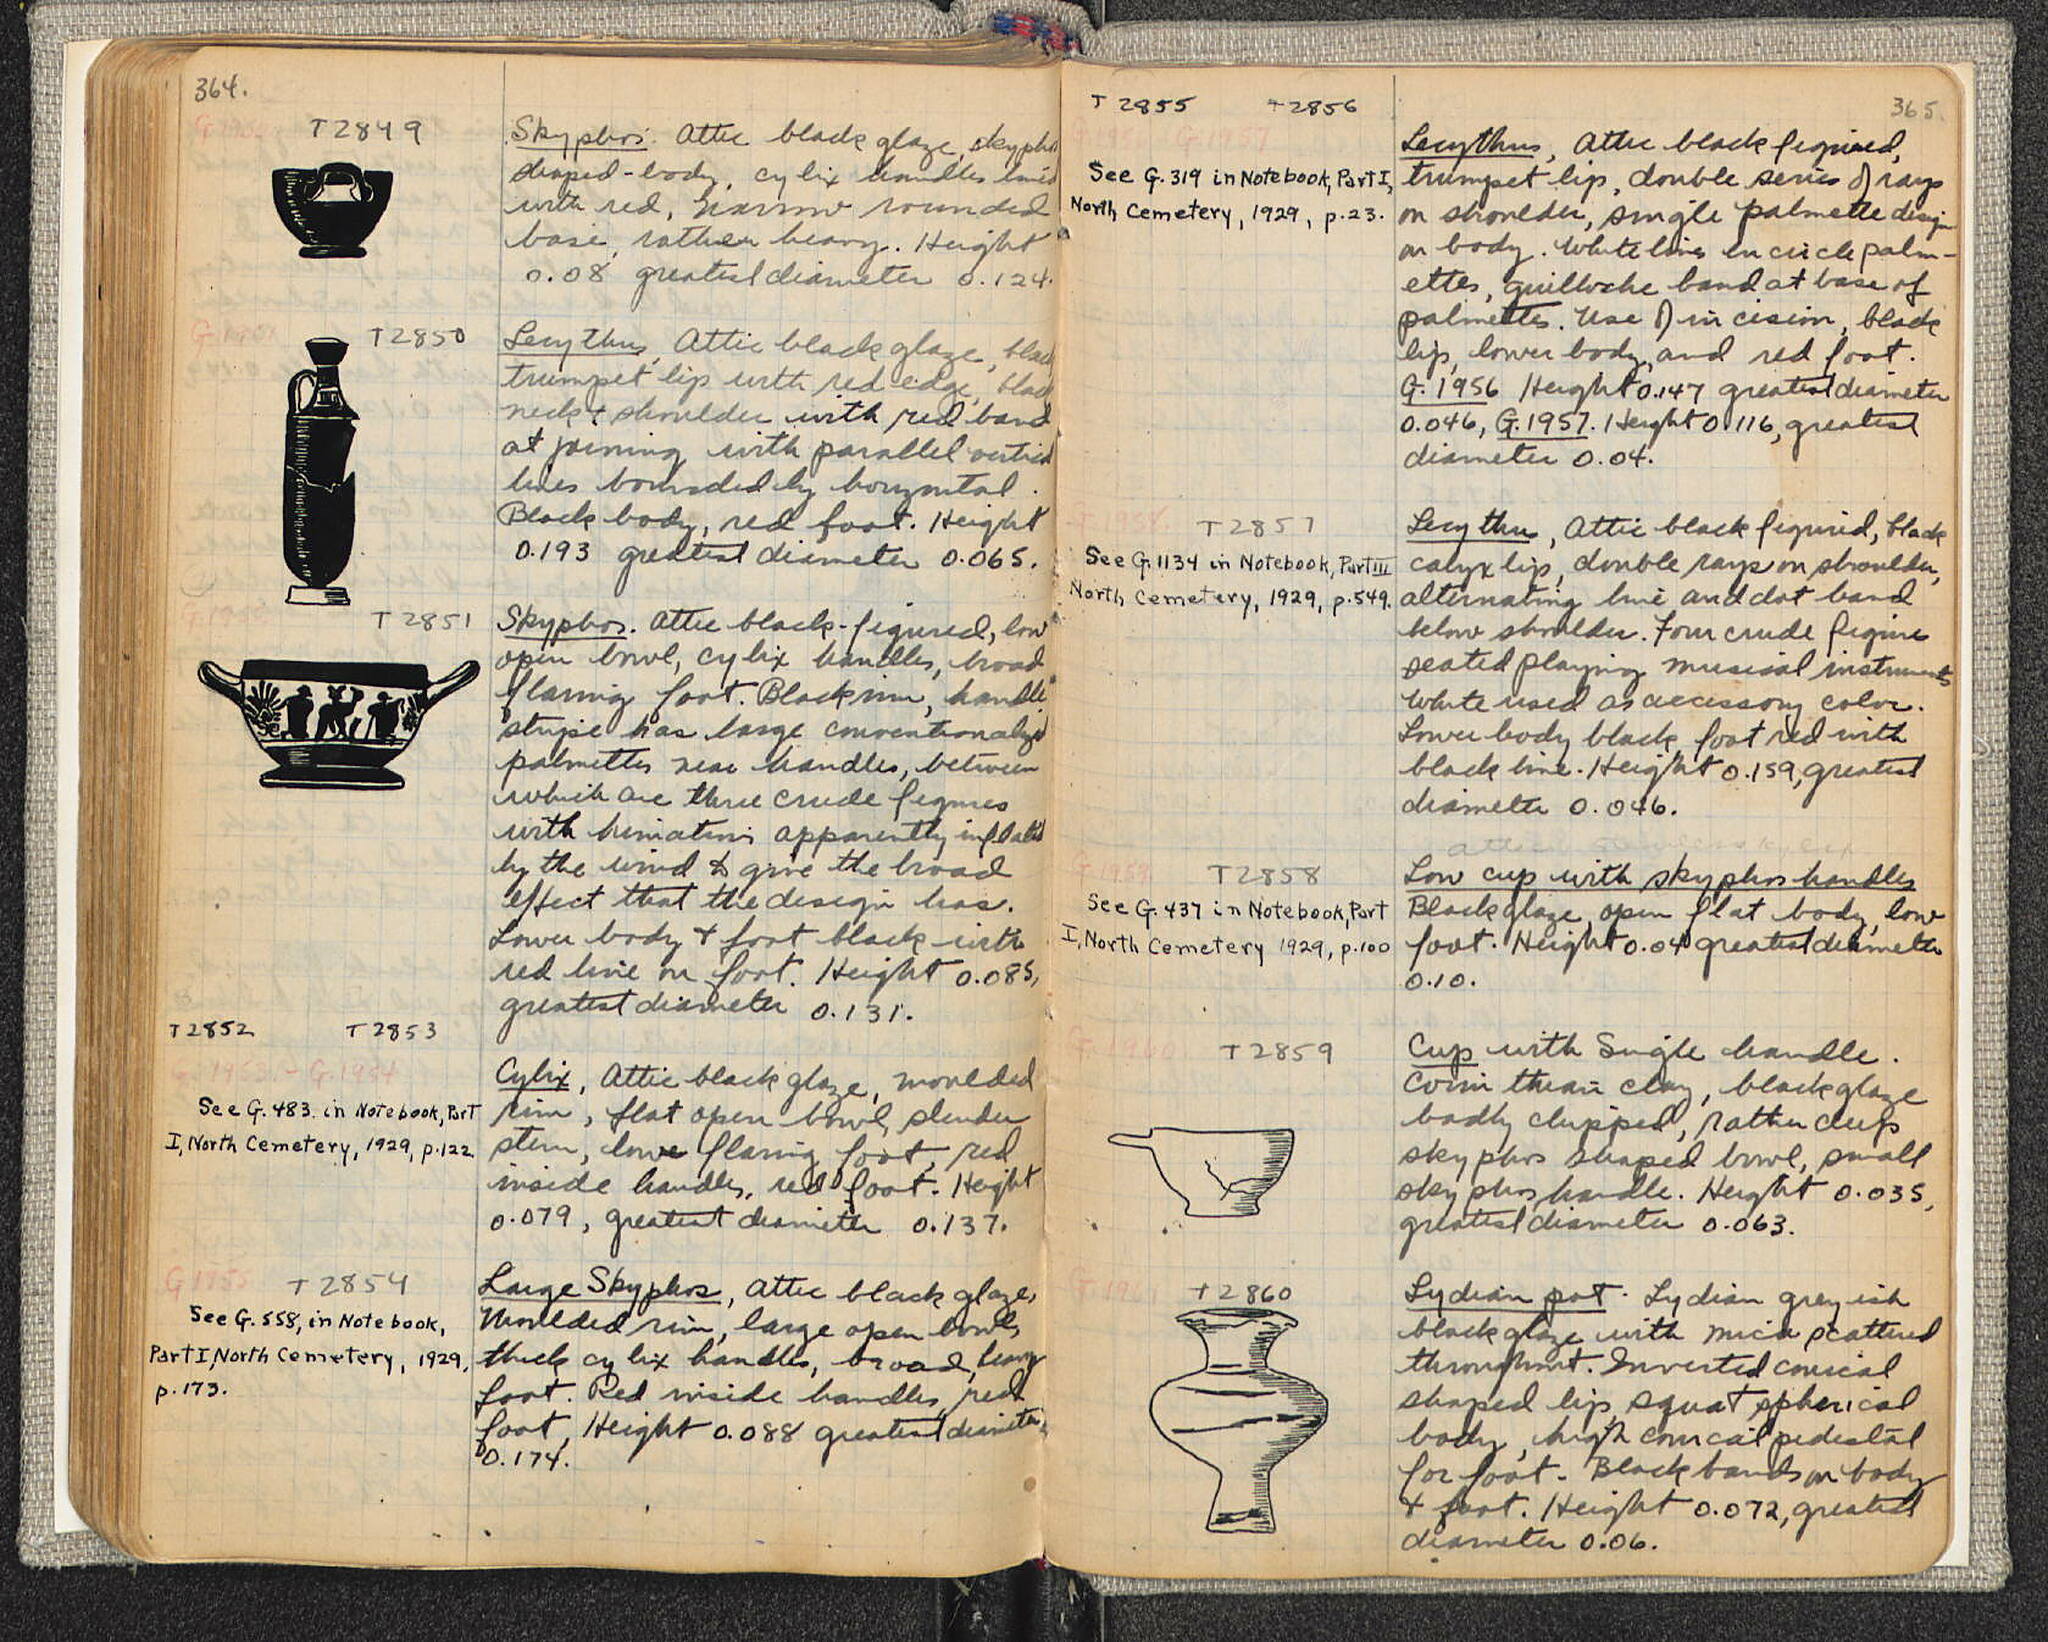 364.
T2849
Skyphos. Attic black glaze, skyphos
shaped-body, cylix handles lined
with red, narrow rounded
base, rather heavy. Height
0.08 greatest diameter 0.124.
T2850
Lecythus, Attic black glaze, black
trumpet lip with red edge, black
neck + shoulder with red band
at joining with parallel vertical
lines bounded by horizontal.
Black body, red foot. Height
0.193 greatest diameter 0.065.
T2851
Skyphos. Attic black-figured, low
open bowl, cylix handles, broad
flaring foot. Black rim, handle
stripe has large conventionalized
palmettes near handles, between
which are three crude figures
with himations apparently inflated
by the wind to give the broad
effect that the design has.
Lower body + foot black with
red line on foot. Height 0.085,
greatest diameter 0.131.
T2852 T2853
G.1953 - G.1954
See G.483 in Notebook, Part
I, North Cemetery, 1929, p.122
Cylix, Attic black glaze, moulded
rim, flat open bowl, slender
stem, low flaring foot, red
inside handles, red foot. Height
0.079, greatest diameter 0.137.
G 1955 T2854
See G.558, in Notebook,
Part I, North Cemetery, 1929,
p.173.
Large Skyphos, Attic black glaze,
Moulded rim, large open bowl,
thick cylix handles, broad, heavy
foot. Red inside handles, red
foot, Height 0.088 greatest diameter
0.174.
365.
T2855 T2856
G.1957
See G.319 in Notebook, Part I,
North Cemetery, 1929, p.23.
Lecythus, Attic black figured,
trumpet lip, double series of rays
on shoulder, single palmette design
on body. White lines encircle palm-
ettes, guilloche band at base of
palmettes. Use of incision, black
lip, lower body, and red foot.
G.1956 Height 0.147 greatest diameter
0.046, G.1957. Height 0.116, greatest
diameter 0.04.
T2857
See G.1134 in Notebook, Part III
North Cemetery, 1929, p.549.
Lecythus, Attic black figured, black
calyx lip, double rays on shoulder,
alternating line and dot band
below shoulder. Four crude figures
seated playing musical instruments
White used as accessory color.
Lower body black, foot red with
black line. Height 0.159, greatest
diameter 0.046.
G.1959 T2858
See G.437 in Notebook, Part
I, North Cemetery 1929, p.100
Low cup with skyphos handles
Black glaze, open flat body, low
foot. Height 0.04 greatest diameter
0.10.
G.1960 T2859
Cup with Single handle.
Corinthian clay, black glaze
badly chipped, rather deep
skyphos shaped bowl, small
skyphos handle. Height 0.035,
greatest diameter 0.063.
G.1961 T2860
Lydian pot. Lydian greyish
black glaze with mica scattered
throughout. Inverted conical
shaped lip, squat spherical
body, high conical pedestal
for foot. Black bands on body
+ foot. Height 0.072, greatest
diameter 0.06.